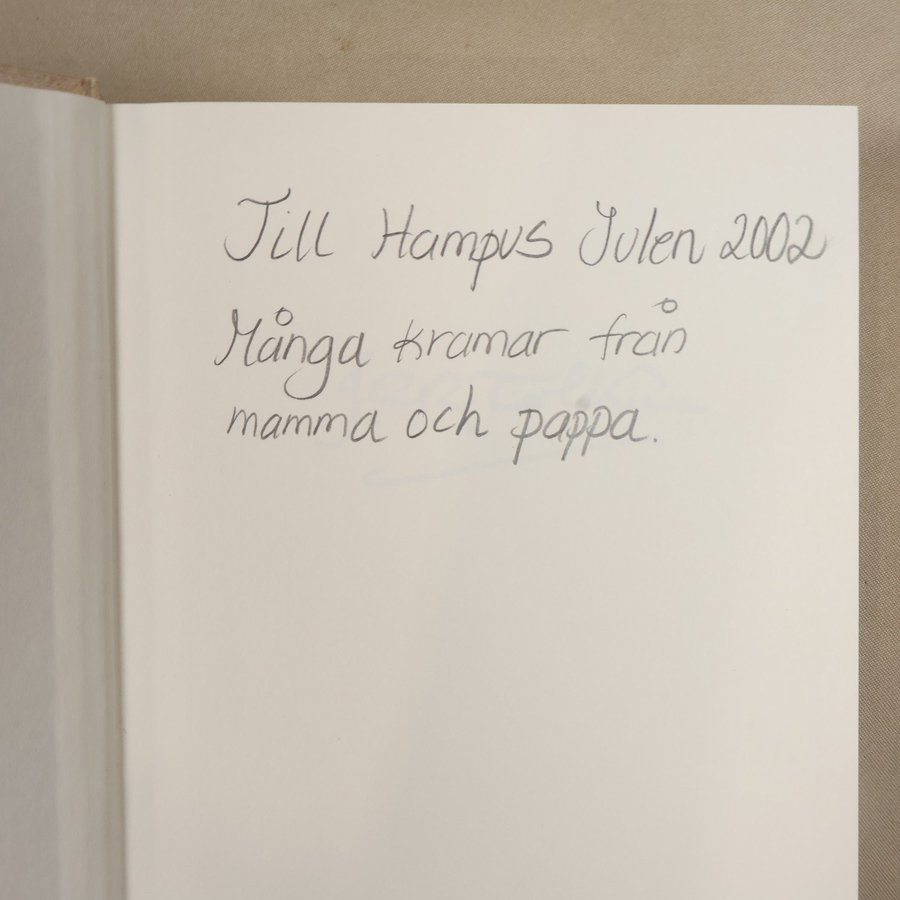 Till Hampus Julen 2002
Många kramar från
mamma och pappa.